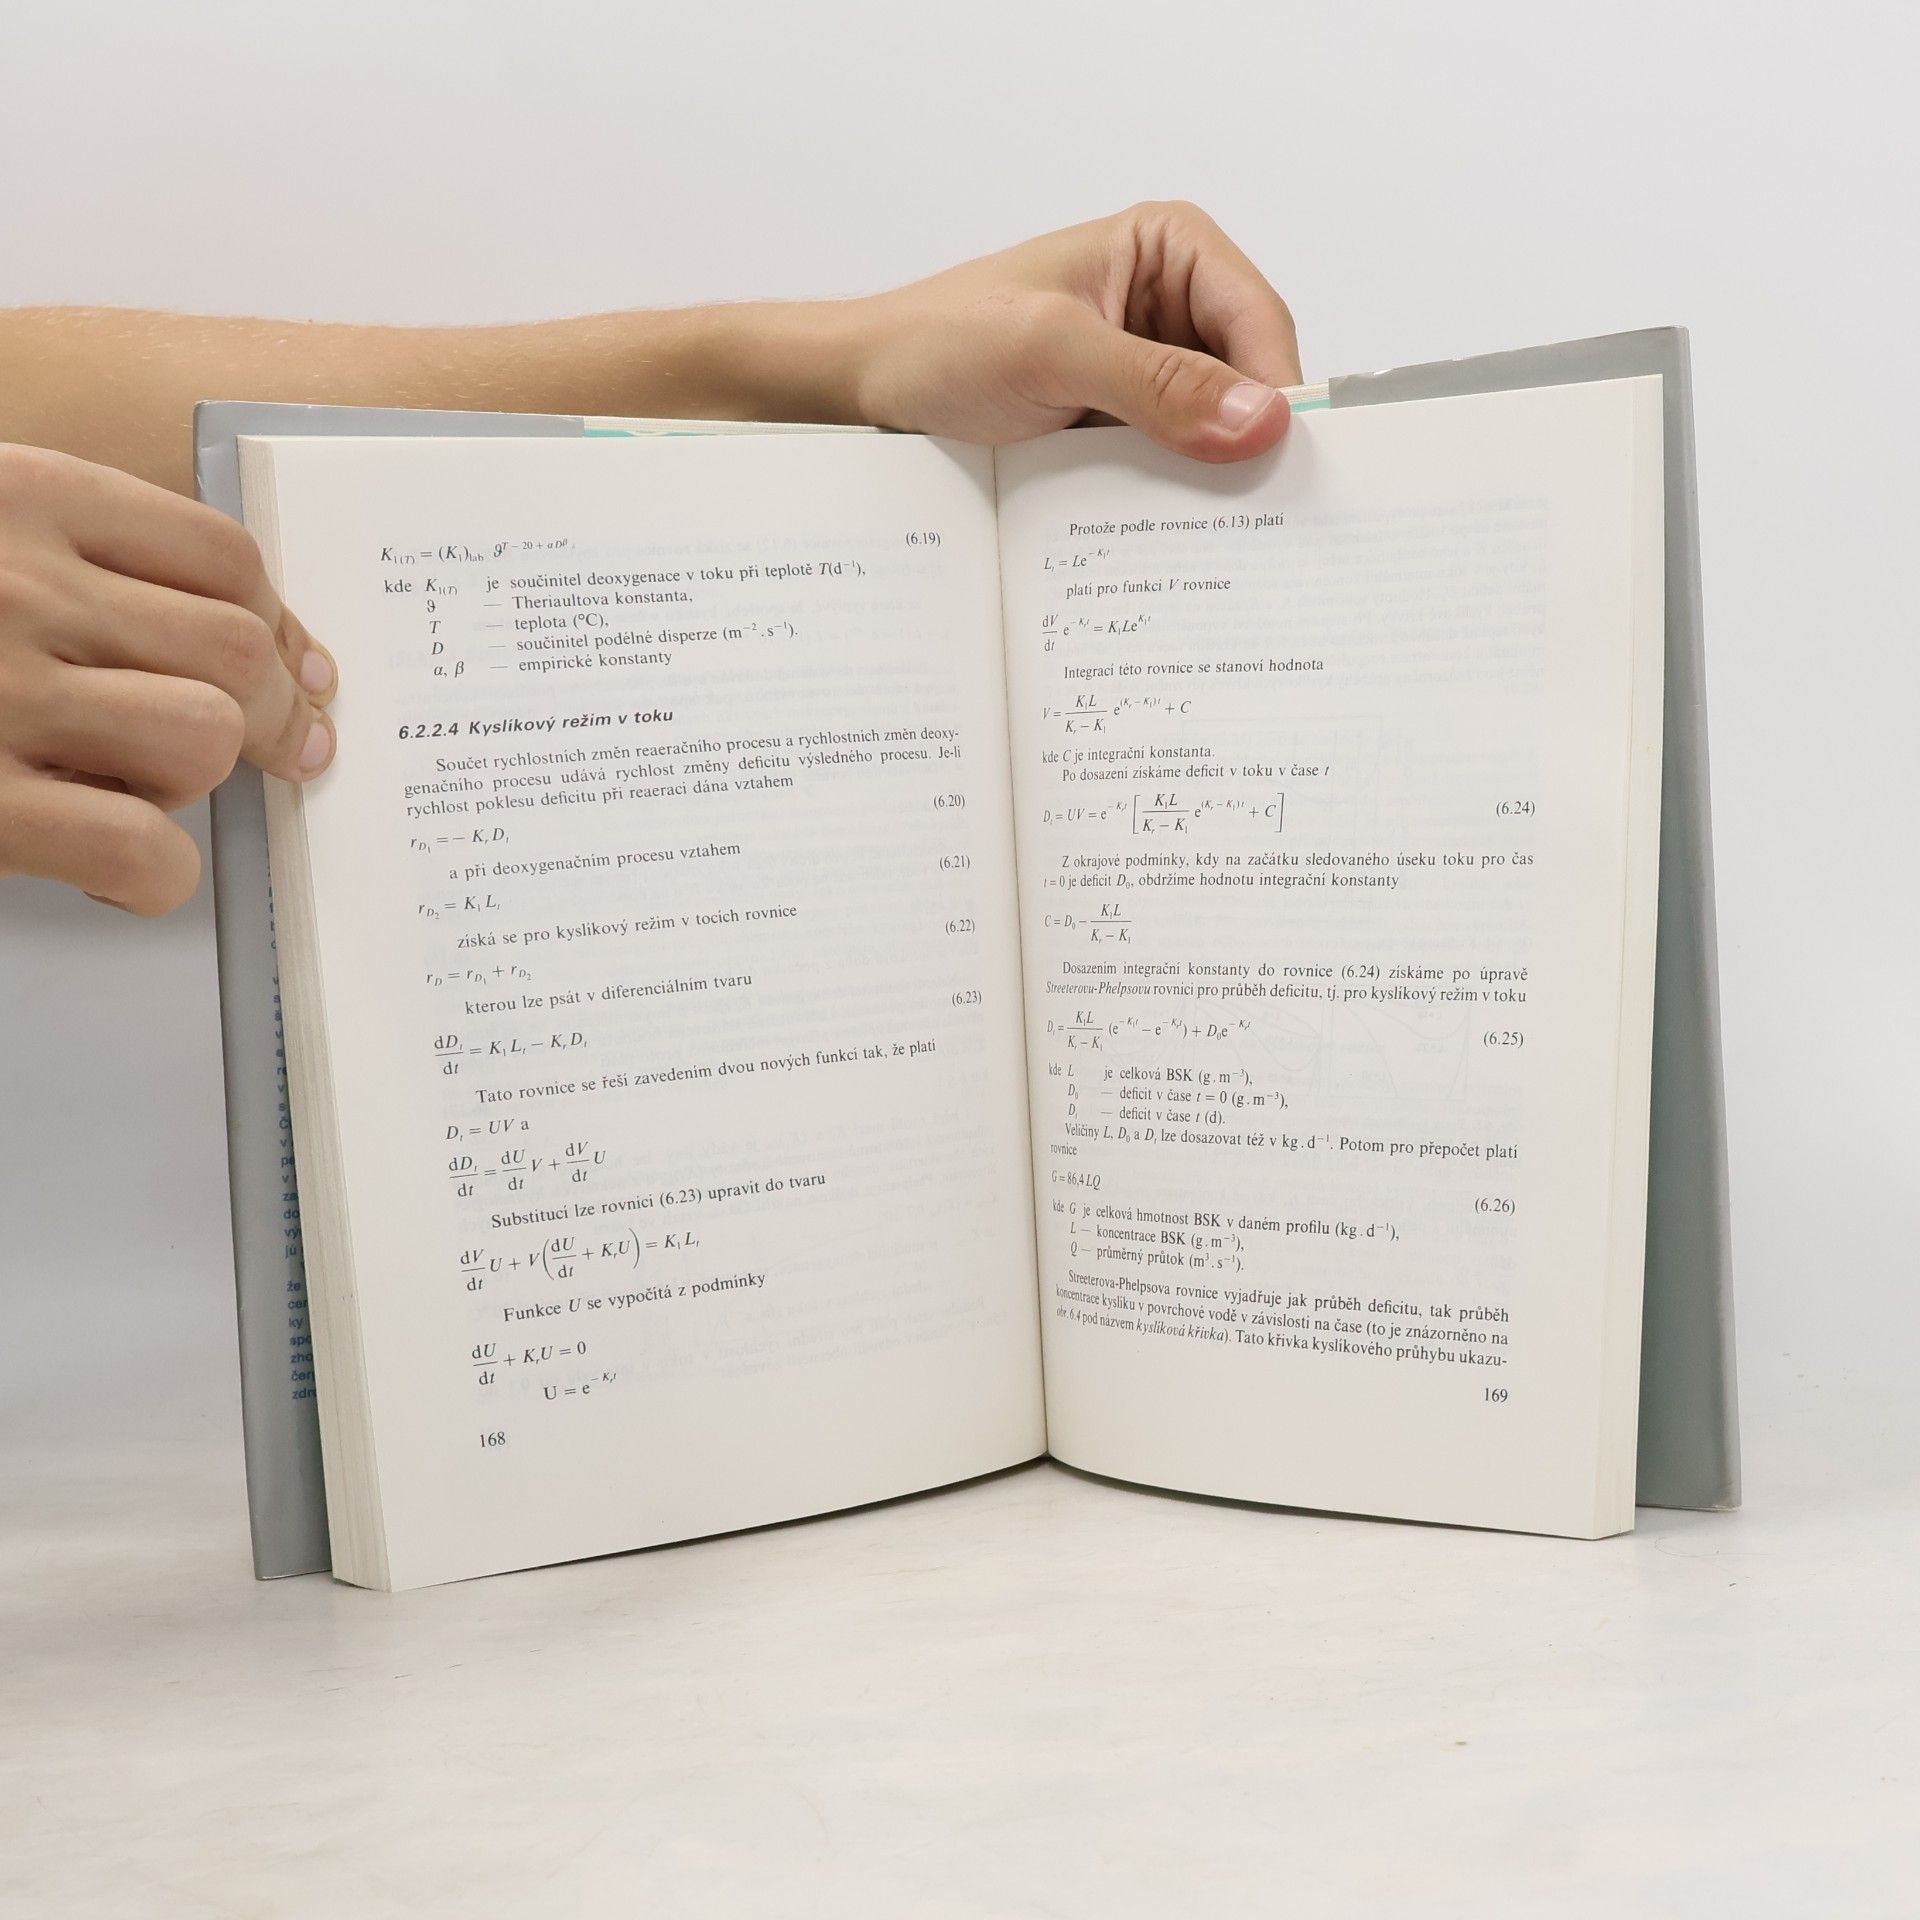 K₁₍T₎ = (K₁)lab ϑ^(T − 20 + αD^β), (6.19)
kde K₁₍T₎ je součinitel deoxygenace v toku při teplotě T(d⁻¹),
ϑ — Theriaultova konstanta,
T — teplota (°C),
D — součinitel podélné disperze (m⁻² . s⁻¹).
α, β — empirické konstanty
6.2.2.4 Kyslíkový režim v toku
Součet rychlostních změn reaeračního procesu a rychlostních změn deoxy-
genačního procesu udává rychlost změny deficitu výsledného procesu. Je-li
rychlost poklesu deficitu při reaeraci dána vztahem
r_D₁ = − K_r D_t (6.20)
a při deoxygenačním procesu vztahem
r_D₂ = K₁ L_t (6.21)
získá se pro kyslíkový režim v tocích rovnice
r_D = r_D₁ + r_D₂ (6.22)
kterou lze psát v diferenciálním tvaru
dD_t/dt = K₁ L_t − K_r D_t (6.23)
Tato rovnice se řeší zavedením dvou nových funkcí tak, že platí
D_t = UV a
dD_t/dt = dU/dt V + dV/dt U
Substitucí lze rovnici (6.23) upravit do tvaru
dV/dt U + V(dU/dt + K_r U) = K₁ L_t
Funkce U se vypočítá z podmínky
dU/dt + K_r U = 0
U = e^(− K_r t)
168
Protože podle rovnice (6.13) platí
L_t = Le^(− K₁t)
platí pro funkci V rovnice
dV/dt e^(− K_r t) = K₁Le^(K₁t)
Integrací této rovnice se stanoví hodnota
V = K₁L/(K_r − K₁) e^((K_r − K₁)t) + C
kde C je integrační konstanta.
Po dosazení získáme deficit v toku v čase t
D_t = UV = e^(− K_r t) [K₁L/(K_r − K₁) e^((K_r − K₁)t) + C] (6.24)
Z okrajové podmínky, kdy na začátku sledovaného úseku toku pro čas
t = 0 je deficit D₀, obdržíme hodnotu integrační konstanty
C = D₀ − K₁L/(K_r − K₁)
Dosazením integrační konstanty do rovnice (6.24) získáme po úpravě
Streeterovu-Phelpsovu rovnici pro průběh deficitu, tj. pro kyslíkový režim v toku
D_t = K₁L/(K_r − K₁) (e^(− K₁t) − e^(− K_r t)) + D₀e^(− K_r t) (6.25)
kde L je celková BSK (g . m⁻³),
D₀ — deficit v čase t = 0 (g . m⁻³),
D_t — deficit v čase t (d).
Veličiny L, D₀ a D_t lze dosazovat též v kg . d⁻¹. Potom pro přepočet platí
rovnice
G = 86,4 LQ (6.26)
kde G je celková hmotnost BSK v daném profilu (kg . d⁻¹),
L — koncentrace BSK (g . m⁻³),
Q — průměrný průtok (m³ . s⁻¹).
Streeterova-Phelpsova rovnice vyjadřuje jak průběh deficitu, tak průběh
koncentrace kyslíku v povrchové vodě v závislosti na čase (to je znázorněno na
obr. 6.4 pod názvem kyslíková křivka). Tato křivka kyslíkového průhybu ukazu-
169